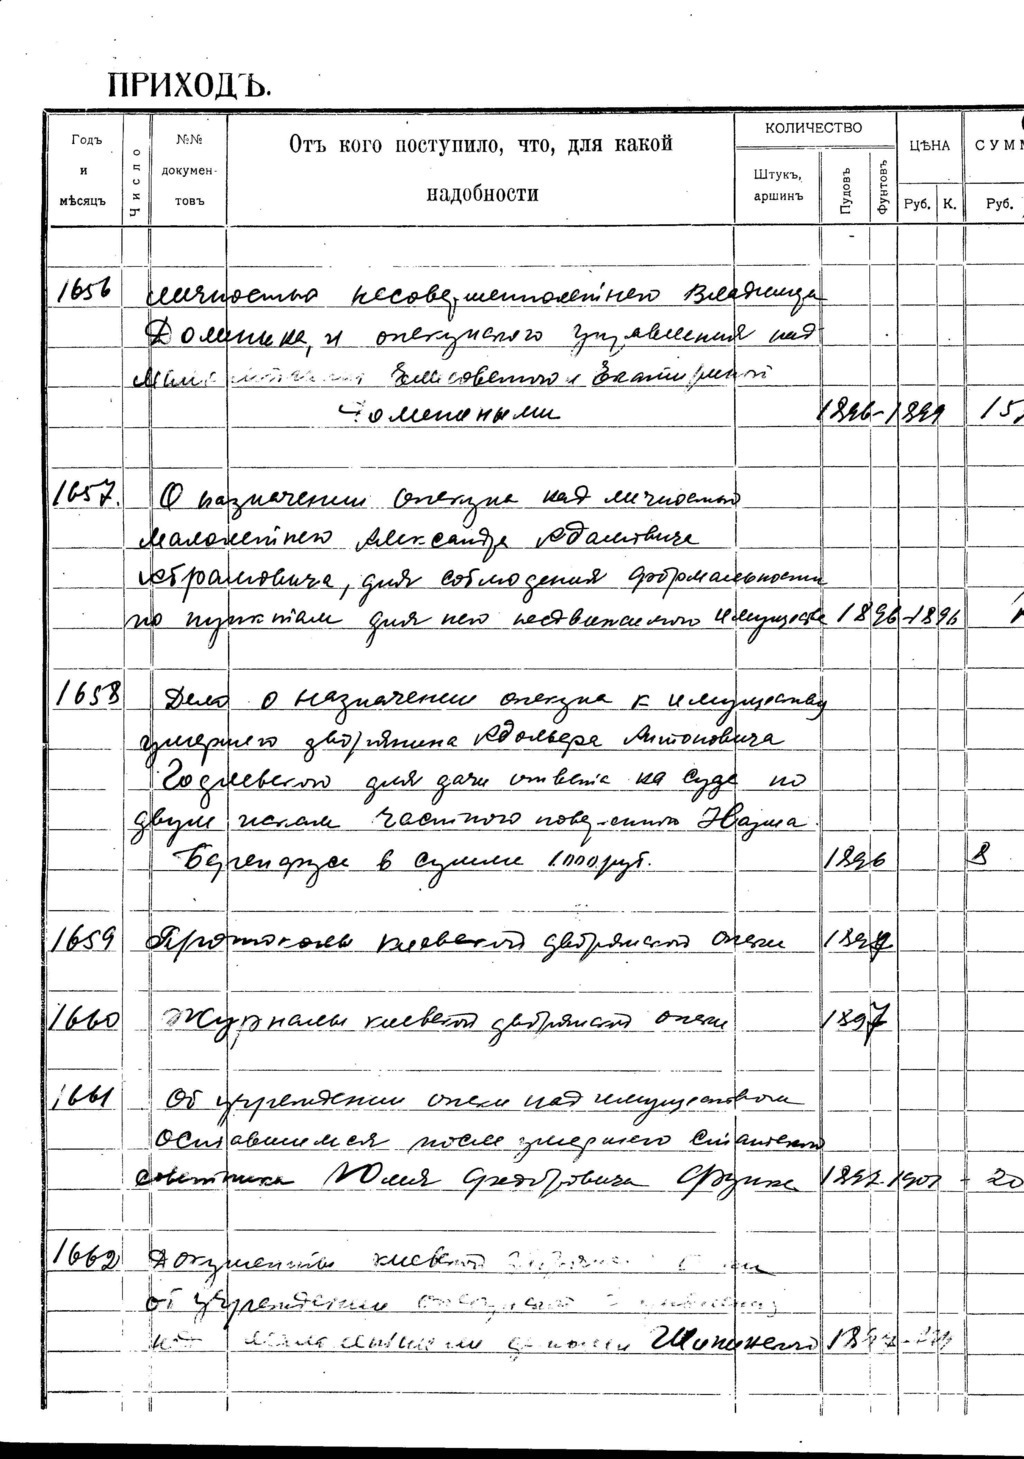 ПРИХОДЪ.
Годъ и мѣсяцъ
Число
№№ докумен-товъ
Отъ кого поступило, что, для какой надобности
КОЛИЧЕСТВО
Штукъ, аршинъ
Пудовъ
Фунтовъ
ЦѢНА
Руб. К.
СУММ
Руб.
1656 личностью несовершеннолетнего Владимира
Доминика, и опекунского управления над
Елисаветою и Екатериной
1896-1899 15
1657. О назначении опекуна над личностью
малолетнего Александра Адамовича
Абрамовича, для соблюдения формальности
по пунктам для него недвижимого имущества 1896-1896
1658 Дело о назначении опекуна к имуществу
умершего дворянина Адольфа Антоновича
Годлевского для дачи ответа на суде по
двум искам частного поверенного
в сумме 1000 руб. 1896 8
1659 Протоколы киевской дворянской опеки 1897
1660 Журналы киевской дворянской опеки 1897
1661 Об учреждении опеки над имуществом
оставшимся после умершего статского
советника Юлия Федоровича Функе 1897-1901 - 20
1662 Документы киевской
об учреждении
над Шипинского